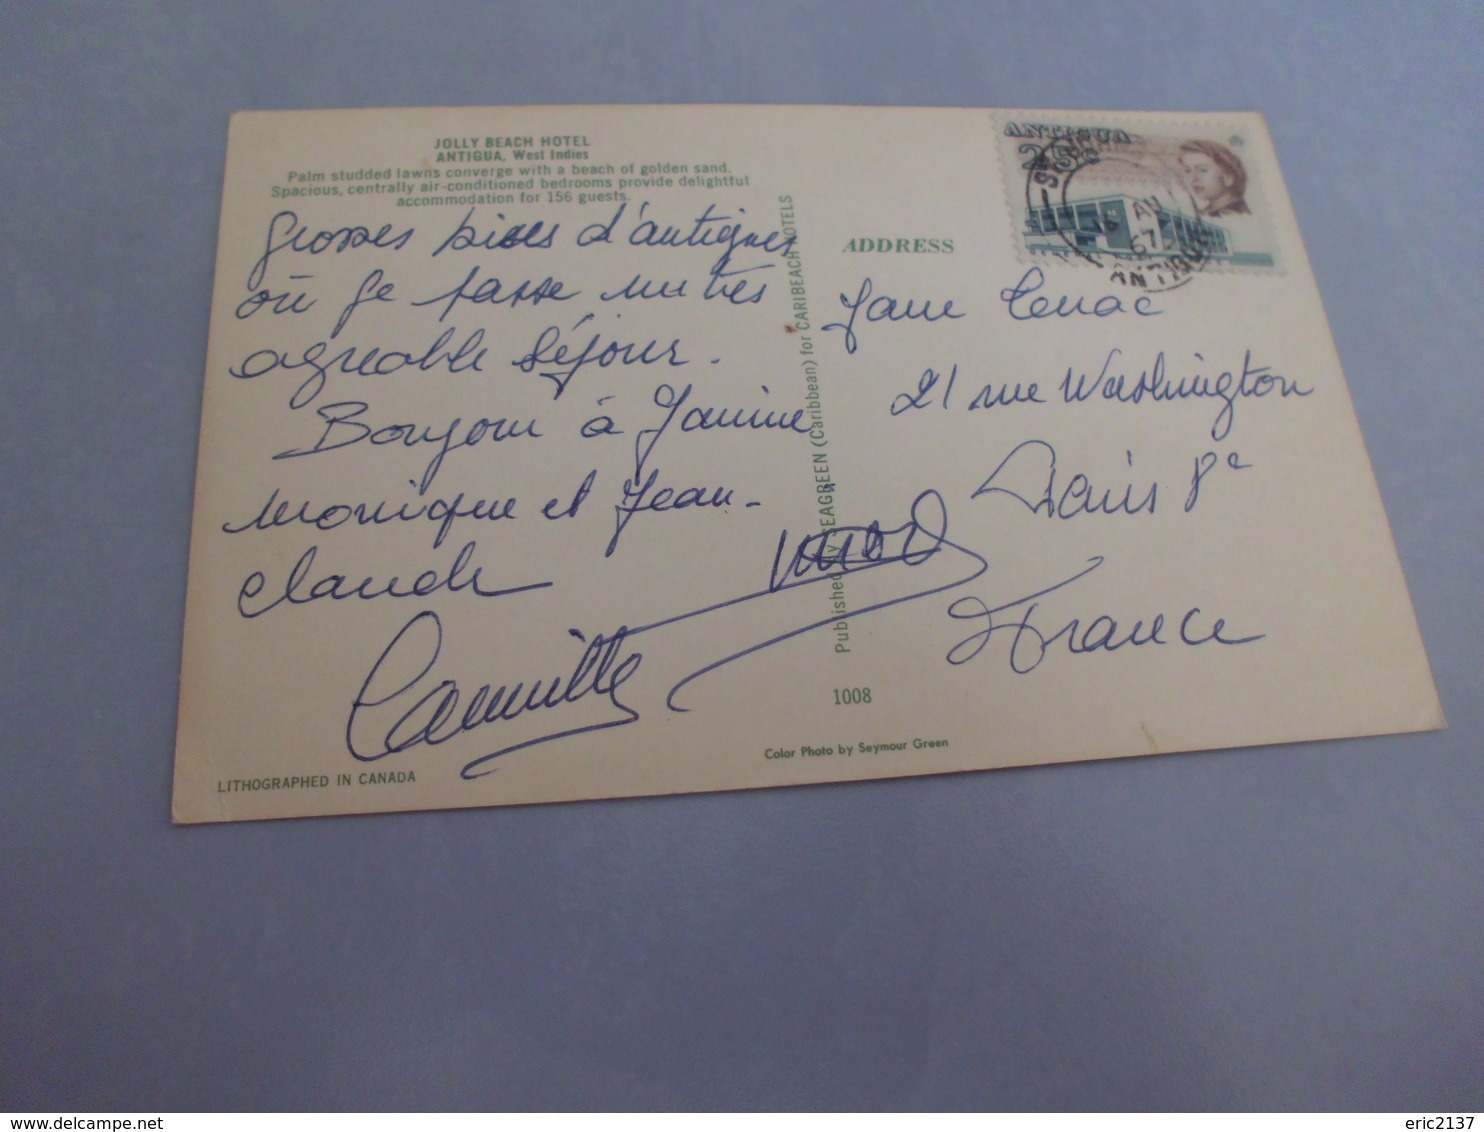 JOLLY BEACH HOTEL
ANTIGUA, West Indies
Palm studded lawns converge with a beach of golden sand.
Spacious, centrally air-conditioned bedrooms provide delightful
accommodation for 156 guests.
grosses bises d'antigues
où je passe un très
agréable séjour.
Bonjour à Janine
monique et Jean-
claude
Camille
LITHOGRAPHED IN CANADA
Published by SEAGREEN (Caribbean) for CARIBEACH HOTELS
1008
Color Photo by Seymour Green
ANTIGUA
25c
ANTIGUA
ADDRESS
21 rue Washington
Paris 8e
France
eric2137